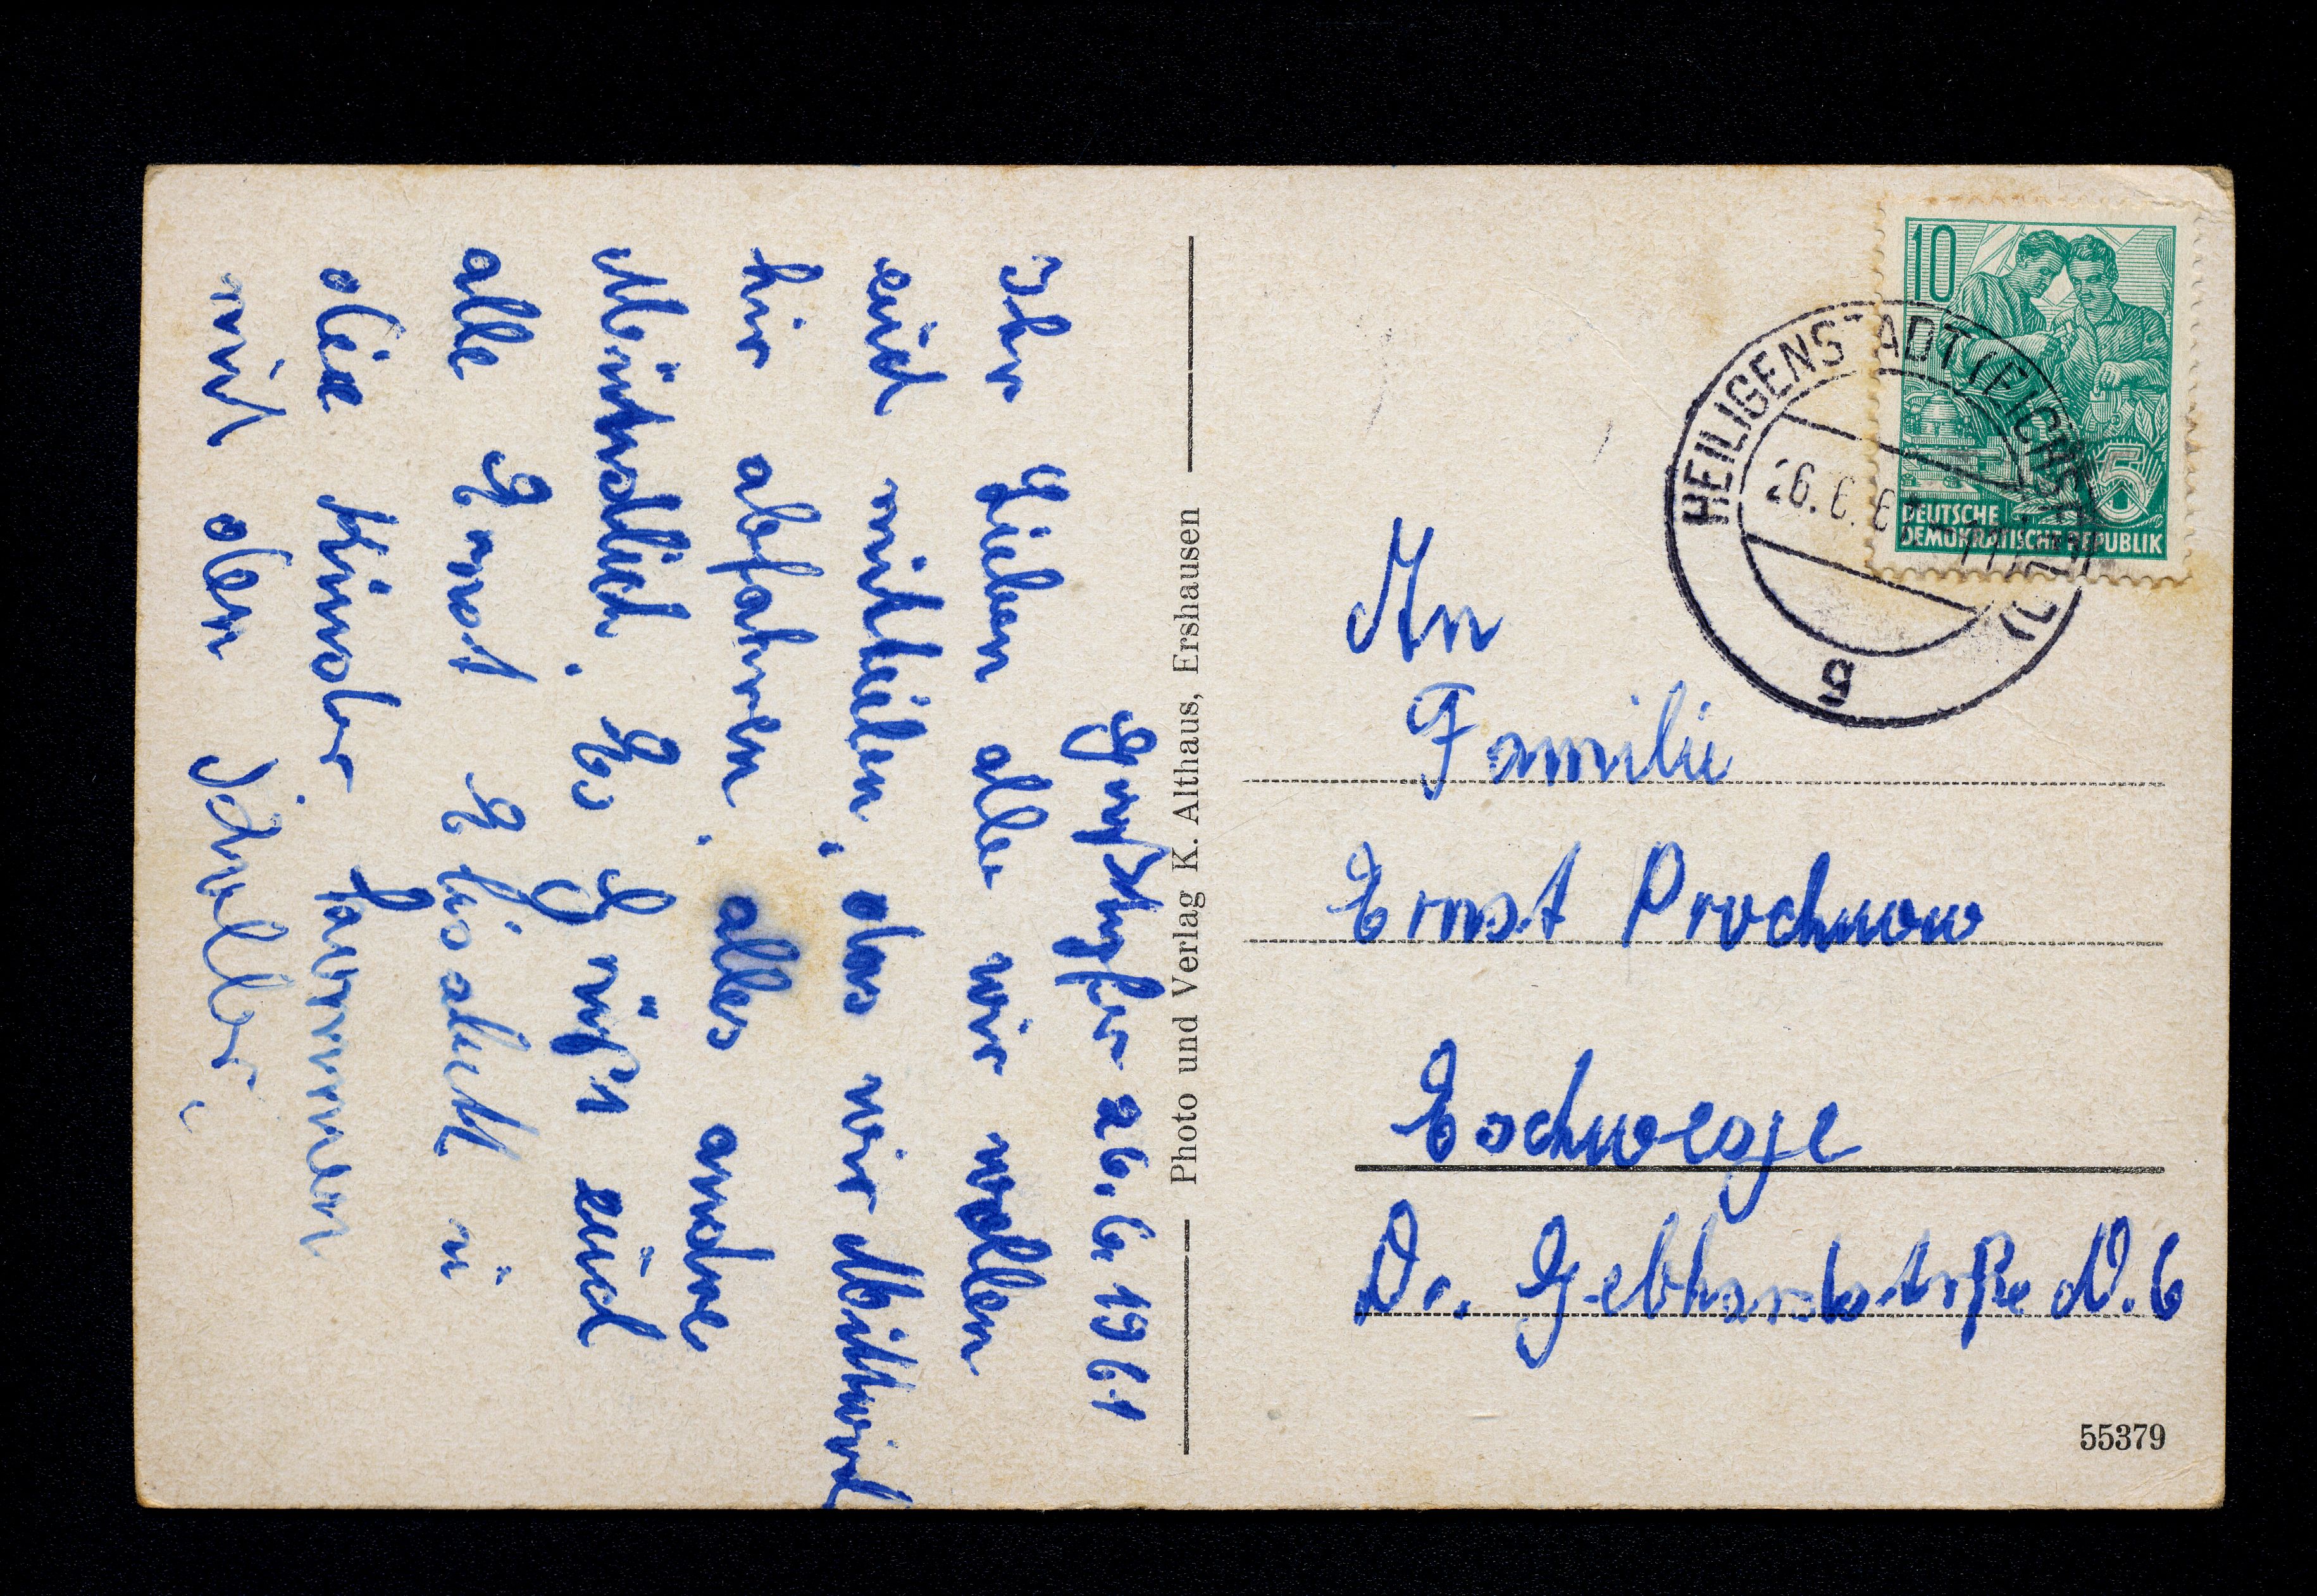 26.6.1961
Ihr Lieben alle wir wollen
euch mitteilen, das wir Mittwird
hir abfahren, alles andre
Mündlich. Es Grüßt euch
alle Ernst Elisabett ü
die Kinder
mit den
Photo und Verlag K. Althaus, Ershausen
10
DEUTSCHE
DEMOKRATISCHE REPUBLIK
5
HEILIGENSTADT (EICHSFELD)
26.6.61-11
g
An
Familie
Ernst Prochnow
Eschwege
Dr. Gebhardstrße N.6
55379